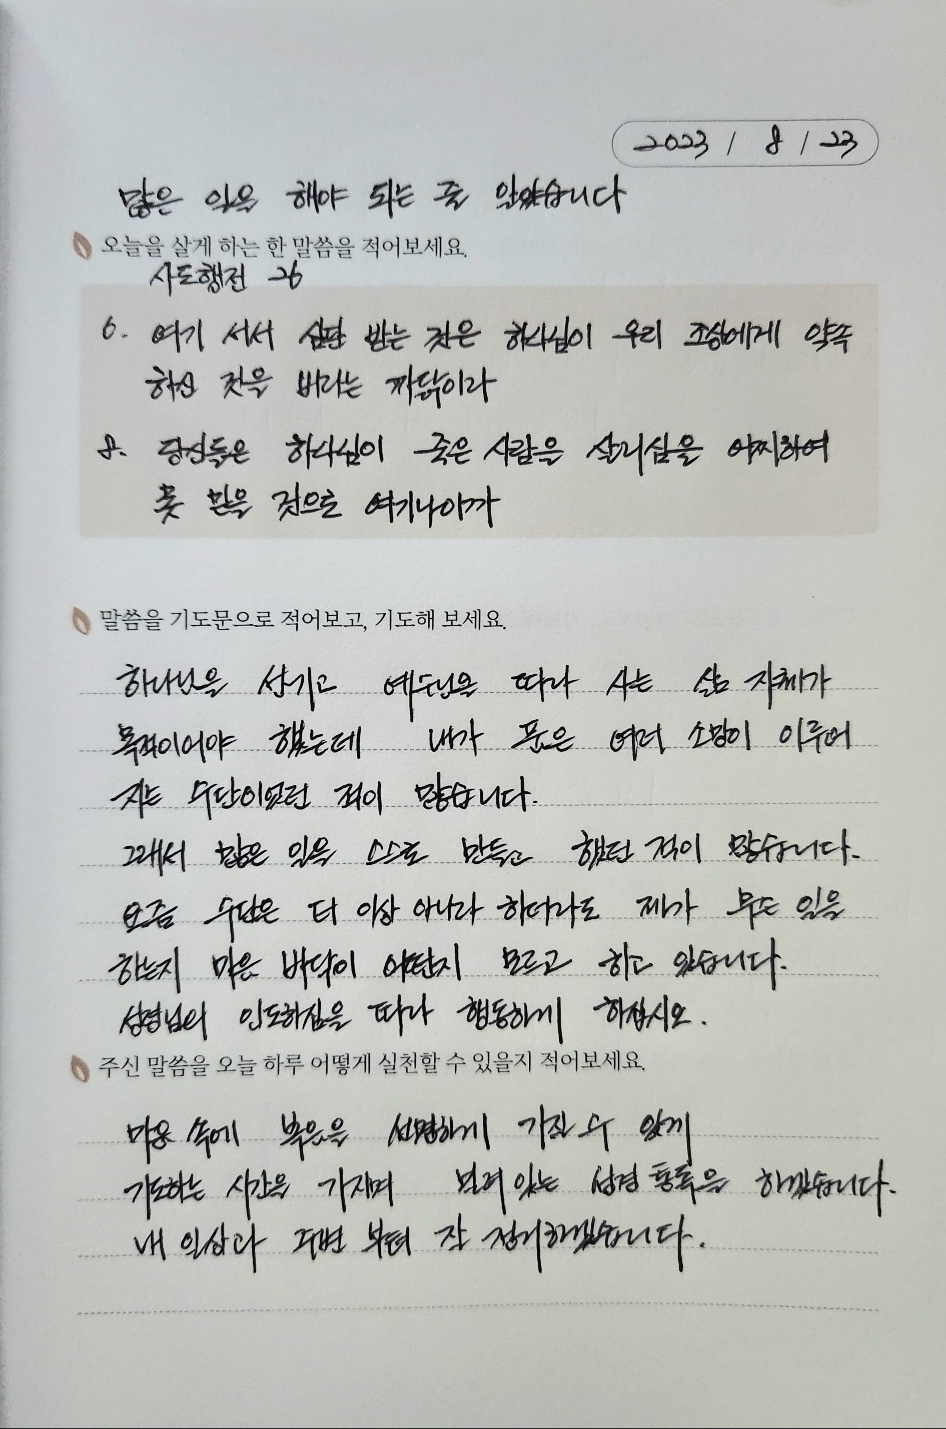 2023 / 8 / 23
많은 일을 해야 되는 줄 알았습니다
오늘을 살게 하는 한 말씀을 적어보세요.
사도행전 26
6. 여기 서서 심판 받는 것은 하나님이 우리 조상에게 약속
하신 것을 바라는 까닭이라
8. 당신들은 하나님이 죽은 사람을 살리심을 어찌하여
못 믿을 것으로 여기나이까
말씀을 기도문으로 적어보고, 기도해 보세요.
하나님을 섬기고 예수님을 따라 사는 삶 자체가
목적이어야 했는데 내가 품은 여러 소망이 이루어
지는 수단이었던 적이 많습니다.
그래서 많은 일을 스스로 만들고 했던 적이 많습니다.
요즘 수단은 더 이상 아니라 하더라도 제가 무슨 일을
하는지 마음 바닥이 어딘지 모르고 하고 있습니다.
성령님의 인도하심을 따라 행동하게 하십시오.
주신 말씀을 오늘 하루 어떻게 실천할 수 있을지 적어보세요.
마음 속에 복음을 선명하게 가질 수 있게
기도하는 시간을 가지며 밀려 있는 성경 통독을 하겠습니다.
내 일상과 주변 부터 잘 정리하겠습니다.